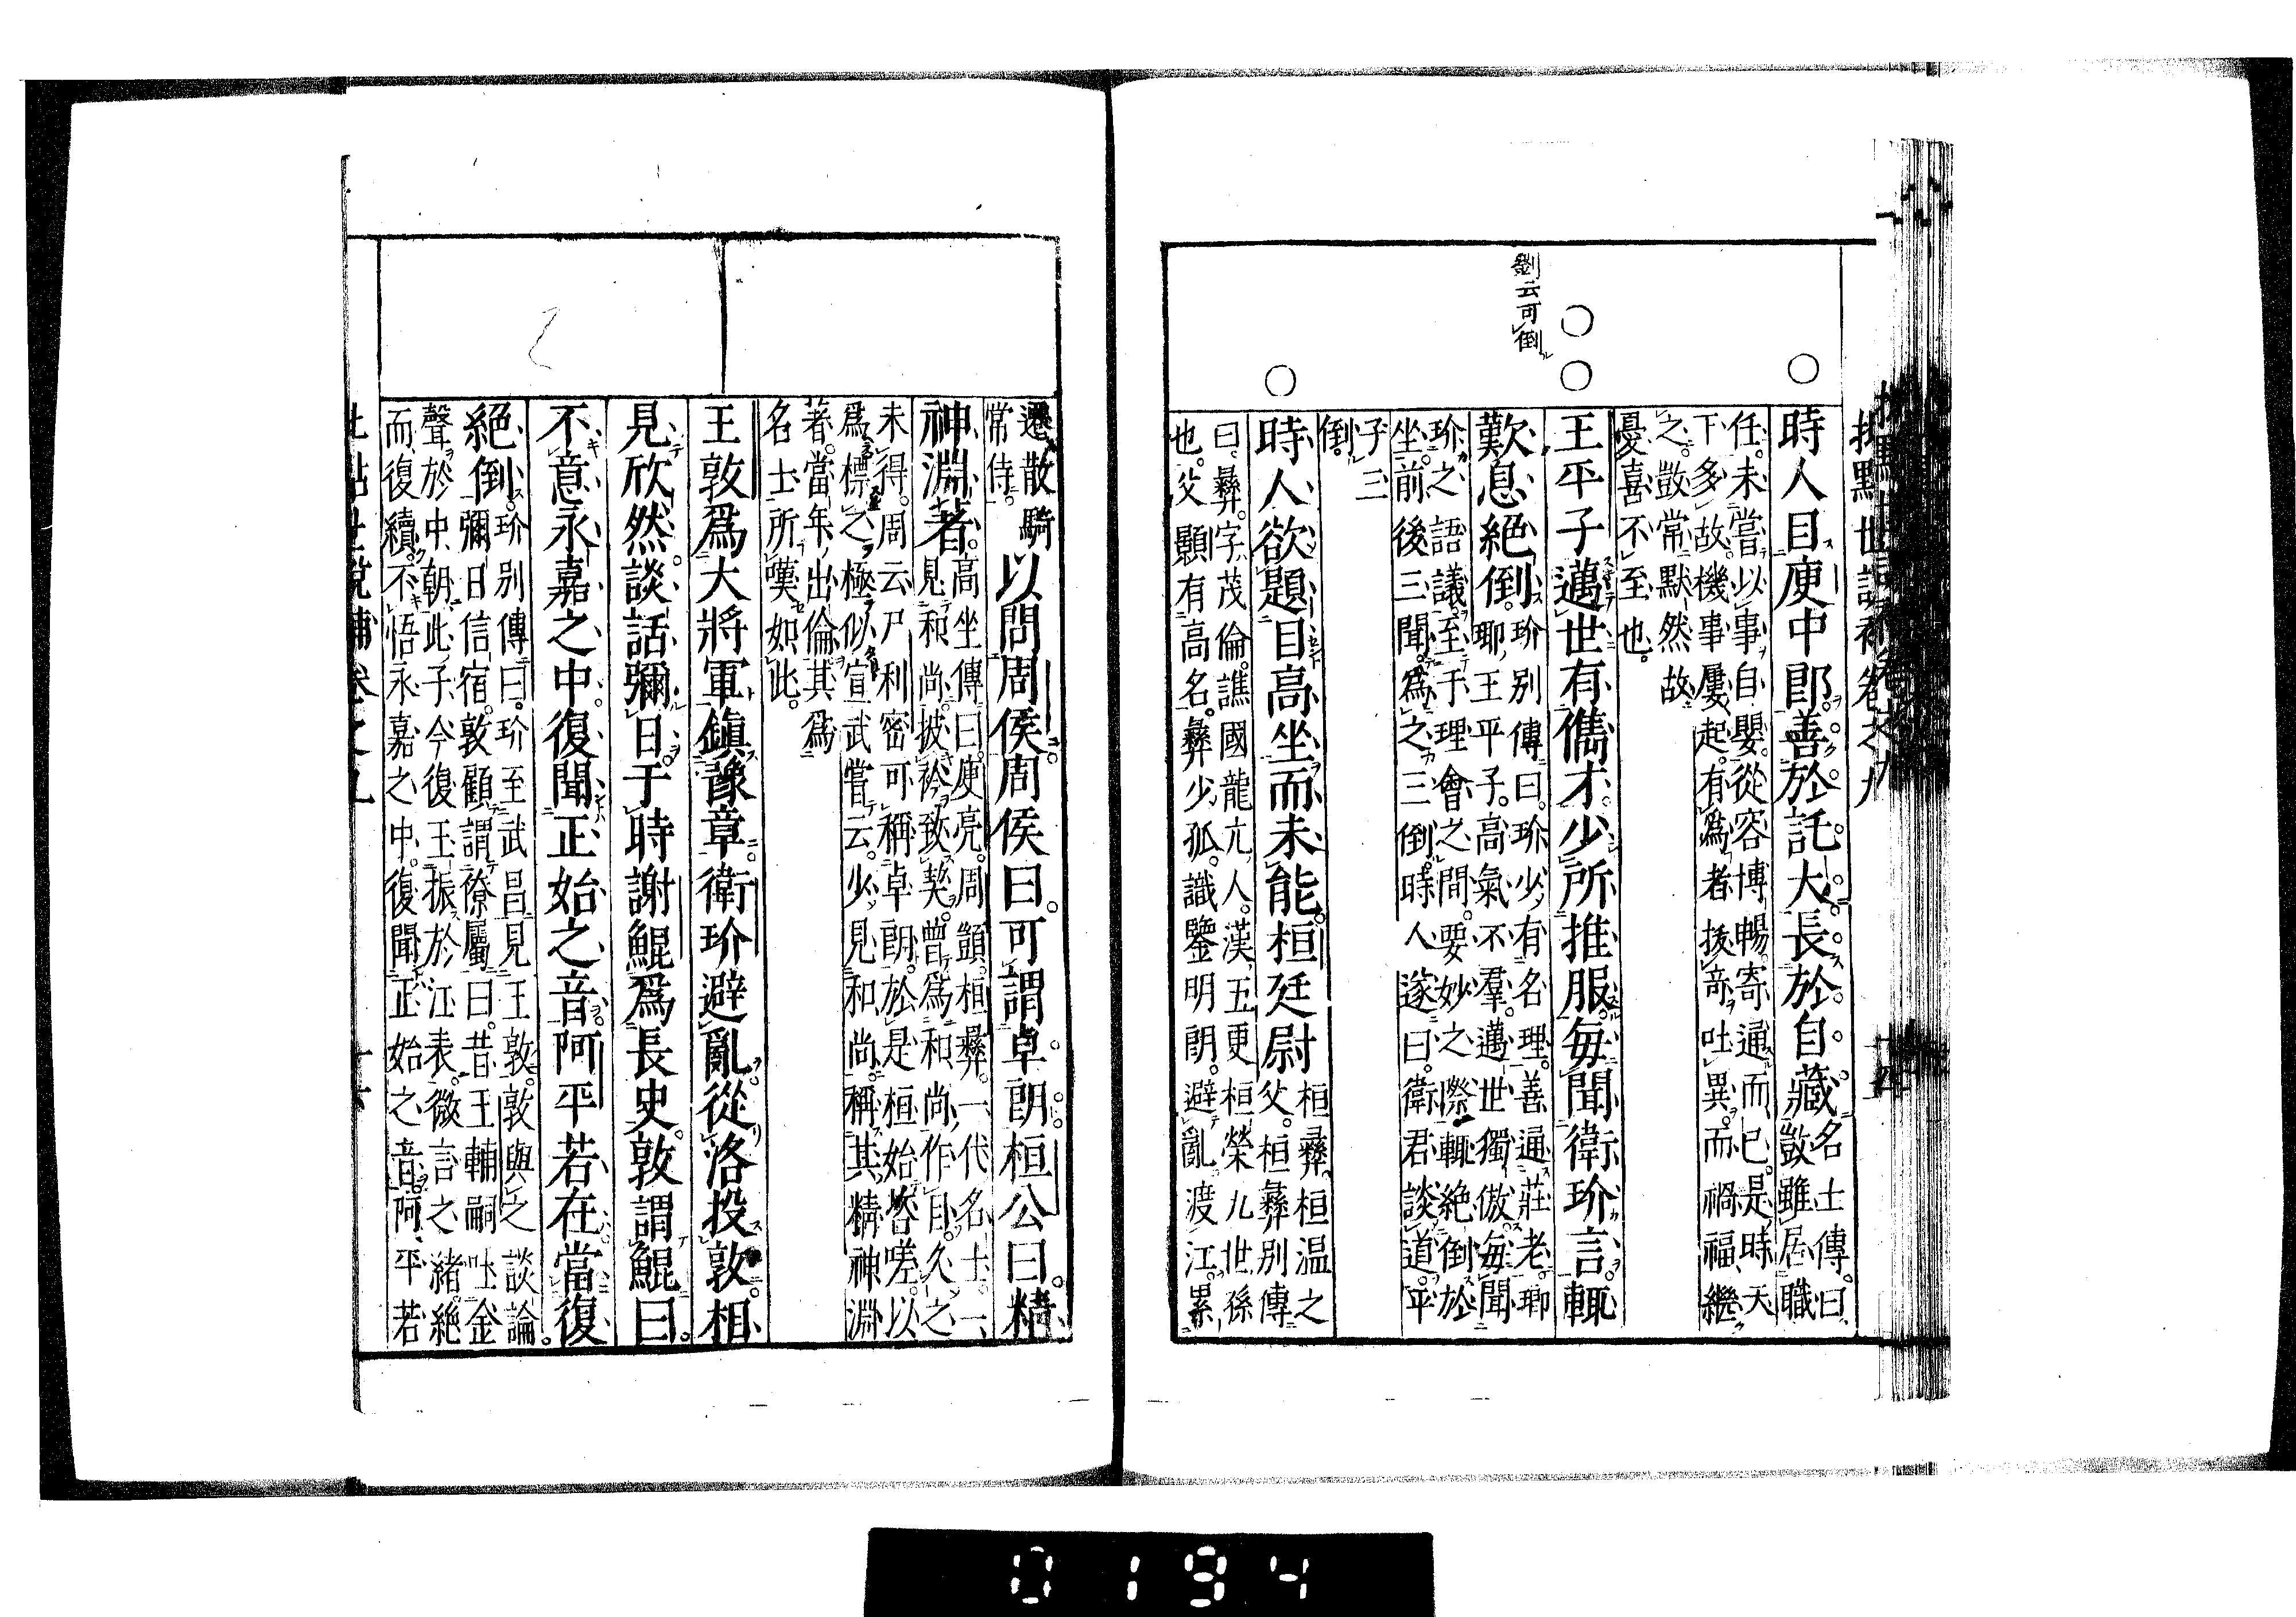 批點世說補卷之九
時人目庾中郎善於託大長於自藏
名士傳曰
敳雖居職
任未嘗以事自嬰從容博暢寄通而已是時天
下多故機事屢起有為者拔奇吐異而禍福繼
之敳常默然故
憂喜不至也
劉云可倒
王平子邁世有儁才少所推服每聞衛玠言輒
歎息絕倒
玠別傳曰玠少有名理善通莊老琅
琊王平子高氣不羣邁世獨傲每聞
玠之語議至于理會之間要妙之際輒絕倒於
坐前後三聞為之三倒時人遂曰衛君談道平
子三
倒
時人欲題目高坐而未能桓廷尉
桓彝桓溫之
父桓彝別傳
曰彝字茂倫譙國龍亢人漢五更桓榮九世孫
也父顥有高名彝少孤識鑒明朗避亂渡江累
遷散騎
常侍
以問周侯周侯曰可謂卓朗桓公曰精
神淵著
高坐傳曰庾亮周顗桓彝一代名士一
見和尚披衿致契曾為和尚作目久之
未得周云尸利密可稱卓朗於是桓始咨嗟以
為標之極似宣武嘗云少見和尚稱其精神淵
著當年出倫其為
名士所嘆如此
王敦為大將軍鎮豫章衛玠避亂從洛投敦相
見欣然談話彌日于時謝鯤為長史敦謂鯤曰
不意永嘉之中復聞正始之音阿平若在當復
絕倒
玠別傳曰玠至武昌見王敦敦與之談論
彌日信宿敦顧謂僚屬曰昔王輔嗣吐金
聲於中朝此子今復玉振於江表微言之緒絕
而復續不悟永嘉之中復聞正始之音阿平若
批點世說補卷之九
0194